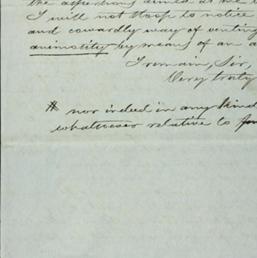 the aspersions aimed at me
I will not stoop to notice
and cowardly way of venting
animosity by means of an a
I remain, Sir,
Very truly
* nor indeed in any kind
whatsoever relative to